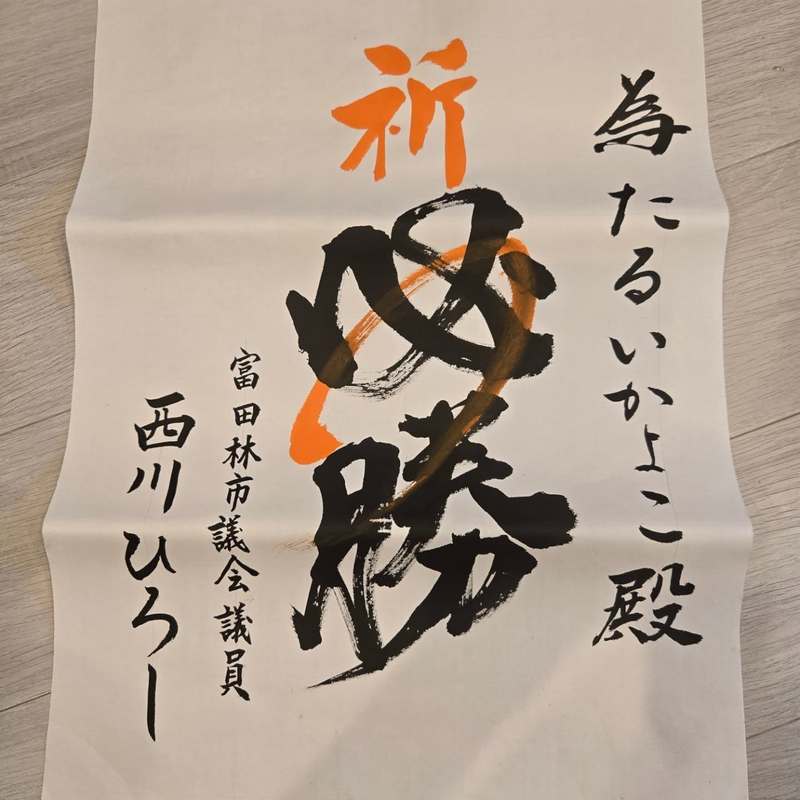 為たるいかよこ殿
祈
必勝
富田林市議会議員
西川ひろし